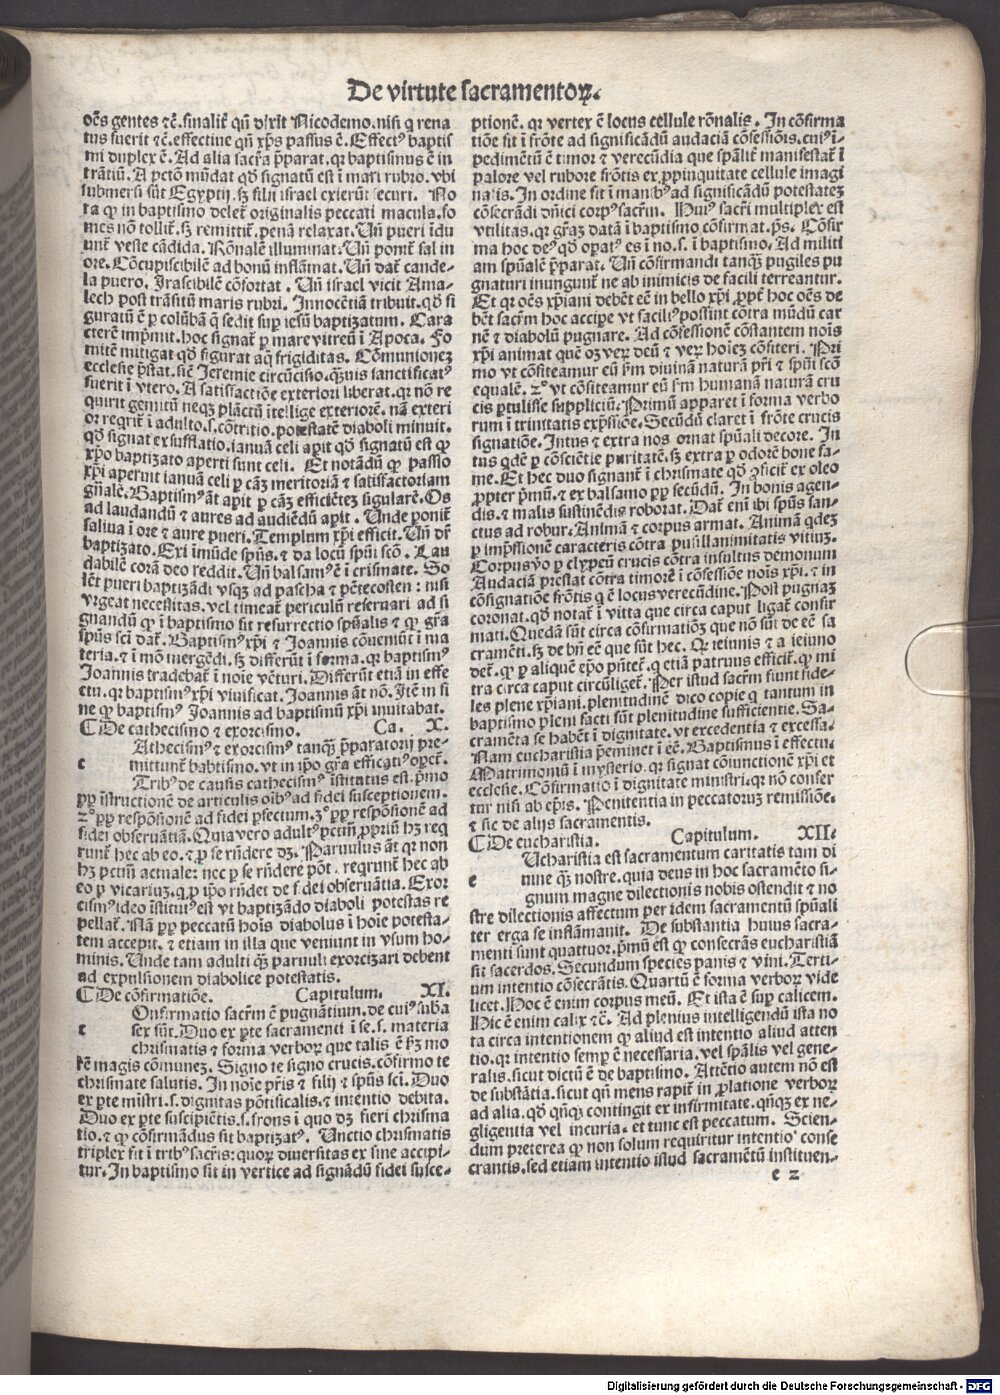 De virtute sacramentoꝝ.
oēs gentes ⁊c̄. finalit̄ qn̄ dixit Nicodemo. nisi q rena
tus fuerit ⁊c̄. effectiue qn̄ xp̄s passus ē. Effect⁹ baptis
mi duplex ē. Ad alia sacr̄a p̄parat. qꝛ baptismus ē in
trātiū. A pctō mūdat qd̄ signatū est ī mari rubro. vbi
submersi sūt Egyptij. sꝫ filij israel exierūt securi. No
ra ꝙ in baptismo delet̄ originalis peccati macula. fo
mes nō tollit̄. sꝫ remittit̄. penā relaxat. Vn̄ pueri īdu
unt̄ veste cādida. Rōnalē illuminat. Vn̄ ponit̄ sal in
ore. Cōcupiscibilē ad bonū inflāmat. Vn̄ dat̄ cande-
la puero. Irascibilē cōfortat. Vn̄ israel vicit Ama-
lech post trāsitū maris rubri. Innocētiā tribuit. qd̄ fi
guratū ē p colūbā q̄ sedit sup iesū baptizatum. Cara
cterē imp̄mit. hoc signat̄ p mare vitreū ī Apoca. Fo
mitē mitigat qd̄ figurat aq̄ frigiditas. Cōmunionez
ecclesie p̄stat. sic̄ Jeremie circūcisio. q̄uis sanctificat⁹
fuerit ī vtero. A satisfactiōe exteriori liberat. qꝛ nō re
quirit gemitū neqꝫ plāctū ītellige exteriorē. nā exteri
or reqrit̄ ī adulto. s. cōtritio. potestatē diaboli minuit.
qd̄ signat exsufflatio. ianuā celi apit qd̄ signatū est ꝙ
xp̄o baptizato aperti sunt celi. Et notādū ꝙ passio
xp̄i aperuit ianuā celi p cāꝫ meritoriā ⁊ satisfactoriam
gn̄alē. Baptism⁹ āt apit p cāꝫ efficiētez sigularē. Os
ad laudandū ⁊ aures ad audiēdū apit. Unde ponit̄
saliua ī ore ⁊ aure pueri. Templum xp̄i efficit. Vn̄ dr̄
baptizato. Exi īmūde spūs. ⁊ da locū spūi scō. Lau
dabilē corā deo reddit. Vn̄ balsam⁹ ē ī crismate. So
lēt pueri baptizādi vsqꝫ ad pascha ⁊ pētecosten: nisi
vrgeat necessitas. vel timeat̄ periculū reseruari ad si
gnandū ꝙ ī baptismo fit resurrectio spūalis ⁊ ꝙ gr̄a
spūs sci dat̄. Baptism⁹ xp̄i ⁊ Joannis cōueniūt ī ma
teria. ⁊ ī mō mergēdi. sꝫ differūt ī forma. qꝛ baptism⁹
Joannis tradebat̄ ī noie vēturi. Differūt etiā in effe
ctu. qꝛ baptism⁹ xp̄i viuificat. Joannis āt nō. Itē in fi
ne qꝛ baptism⁹ Joannis ad baptismū xp̄i inuitabat.
¶De cathecismo ⁊ exorcismo. Ca. X.
Athecism⁹ ⁊ exorcism⁹ tanqꝫ p̄paratorij pre-
c mittunt̄ babtismo. vt in ip̄o gr̄a efficati⁹ opet̄.
Trib⁹ de causis cathecism⁹ īstitutus est. p̄mo
ꝓp̄ īstructionē de articulis oīb⁹ ad fidei susceptionem.
2° ꝓp̄ respōsionē ad fidei ꝓfectum. 3° ꝓp̄ respōsionē ad
fidei obseruātiā. Quia vero adult⁹ pctm̄ ꝓpriū hꝫ req
runt̄ hec ab eo. ⁊ p se rn̄dere dꝫ. Paruulus āt qꝛ non
hꝫ pctm̄ actuale: nec p se rn̄dere pōt. reqrunt̄ hec ab
eo p vicariuꝫ. q p ip̄o rn̄det de fidei obseruātia. Exor
cism⁹ ideo īstitut⁹ est vt baptizādo diaboli potestas re
pellat̄. Nā ꝓp̄ peccatū hoīs diabolus ī hoīe potesta-
tem accepit. ⁊ etiam in illa que veniunt in vsum ho-
minis. Unde tam adulti qꝫ paruuli exorcizari debent
ad expulsionem diabolice potestatis.
¶De cōfirmatiōe. Capitulum. XI.
Onfirmatio sacrm̄ ē pugnātium. de cui⁹ suba
c sex sūt. Duo ex pte sacramenti ī se. s. materia
chrismatis ⁊ forma verboꝝ que talis ē sꝫ mo
rē magis cōmunez. Signo te signo crucis. cōfirmo te
chrismate salutis. In noie pr̄is ⁊ filij ⁊ spūs sci. Duo
ex pte mistri. s. dignitas pōtificalis. ⁊ intentio debita.
Duo ex pte suscipiētis. s. frons ī quo dꝫ fieri chrisma
tio. ⁊ ꝙ cōfirmādus sit baptizat⁹. Unctio chrismatis
triplex fit ī trib⁹ sacris: quoꝝ diuersitas ex fine accipi-
tur. In baptismo fit in vertice ad signādū fidei susce-
ptionē. qꝛ vertex ē locus cellule rōnalis. In cōfirma
tiōe fit ī frōte ad significādū audaciā cōfessiōis. cui⁹ ī-
pedimētū ē timor ⁊ verecūdia que spālit̄ manifestat̄ ī
palore vel rubore frōtis ex ꝓpinquitate cellule imagi
naria. In ordine fit ī manib⁹ ad significādū potestatez
cōsecrādi dn̄ici corp⁹ sacrm̄. Hui⁹ sacri multiplex est
vtilitas. qꝛ gr̄aꝫ datā ī baptismo cōfirmat. ps. Cōfir
ma hoc de⁹ qd̄ opat⁹ es ī no. s. ī baptismo. Ad militi
am spūalē p̄parat. Vn̄ cōfirmandi tanqꝫ pugiles pu
gnaturi inungunt̄ ne ab inimicis de facili terreantur.
Et qꝛ oēs xp̄iani debēt eē in bello xp̄i ꝓpt̄ hoc oēs de
bēt sacrm̄ hoc accipe vt facili⁹ possint cōtra mūdū car
nē ⁊ diabolū pugnare. Ad cōfessionē cōstantem nois
xp̄i animat quē oꝫ ver deū ⁊ ver hoiez cōfiteri. Pri
mo vt cōfiteamur eū ẜm diuinā naturā pr̄i ⁊ spūi scō
equalē. 2° vt cōfiteamur eū ẜm humanā naturā cru
cis ptulisse suppliciū. Primū apparet ī forma verbo
rum ī trinitatis exp̄ssiōe. Secūdū claret ī frōte crucis
signatiōe. Intus ⁊ extra nos ornat spūali decore. In
tus qdē p cōsciētie puritatē. sꝫ extra p odorē bone fa-
me. Et hec duo signant̄ ī chrismate qd̄ ꝯficit̄ ex oleo
ꝓpter p̄mū. ⁊ ex balsamo ꝓp̄ secūdū. In bonis agen-
dis. ⁊ malis sustinēdis roborat. Dat̄ enī ibi spūs san-
ctus ad robur. Animā ⁊ corpus armat. Animā qdez
p imp̄ssionē caracteris cōtra pusillanimitatis vitiuꝫ.
Corpus vo p clypeū crucis cōtra insultus demonum
Audaciā prestat cōtra timorē ī cōfessiōe nois xp̄i. ⁊ in
cōsignatiōe frōtis q ē locus verecūdine. Post pugnaꝫ
coronat. qd̄ notat̄ ī vitta que circa caput ligat̄ confir
mati. Quedā sūt circa cōfirmatiōꝫ que nō sūt de eē sa
cramēti. sꝫ de bn̄ eē que sūt hec. Qꝛ ieiunis ⁊ a ieiuno
det̄. ꝙ p aliquē epō pn̄tet̄. q etiā patruus efficit̄. ꝙ mi
tra circa caput circūliget̄. Per istud sacrm̄ fiunt fide-
les plene xp̄iani. plenitudinē dico copie q̄ tantum in
baptismo pleni facti sūt plenitudine sufficientie. Sa-
cramēta se habēt ī dignitate. vt excedentia ⁊ excessa.
Nam eucharistia p̄eminet ī eē. Baptismus ī effectu.
Matrimoniū ī mysterio. qꝛ signat cōiunctionē xp̄i et
ecclesie. Cōfirmatio ī dignitate ministri. qꝛ nō confer
tur nisi ab ep̄is. Penitentia in peccatoꝝ remissiōe.
⁊ sic de alijs sacramentis.
¶De eucharistia. Capitulum. XII.
Ucharistia est sacramentum caritatis tam di
e uine qꝫ nostre. quia deus in hoc sacramēto si-
gnum magne dilectionis nobis ostendit ⁊ no
stre dilectionis affectum per idem sacramentū spūali
ter erga se inflāmauit. De substantia huius sacra-
menti sunt quattuor. p̄mū est ꝙ consecrās eucharistiā
sit sacerdos. Secundum species panis ⁊ vini. Terti-
um intentio cōsecrātis. Quartū ē forma verboꝝ vide
licet. Hoc ē enim corpus meū. Et ista ē sup calicem.
Hic ē enim calix ⁊c̄. Ad plenius intelligendū ista no
ta circa intentionem ꝙ aliud est intentio aliud atten
tio. qꝛ intentio semp ē necessaria. vel spālis vel gene-
ralis. sicut dictū ē de baptismo. Attētio autem nō est
de substātia. sicut qn̄ mens rapit̄ in ꝓlatione verboꝝ
ad alia. qd̄ qn̄qꝫ contingit ex infirmitate. qn̄qꝫ ex ne-
gligentia vel incuria. et tunc est peccatum. Scien-
dum preterea ꝙ non solum requiritur intentio conse
crantis. sed etiam intentio istud sacramētū instituen-
e 2
Digitalisierung gefördert durch die Deutsche Forschungsgemeinschaft - DFG